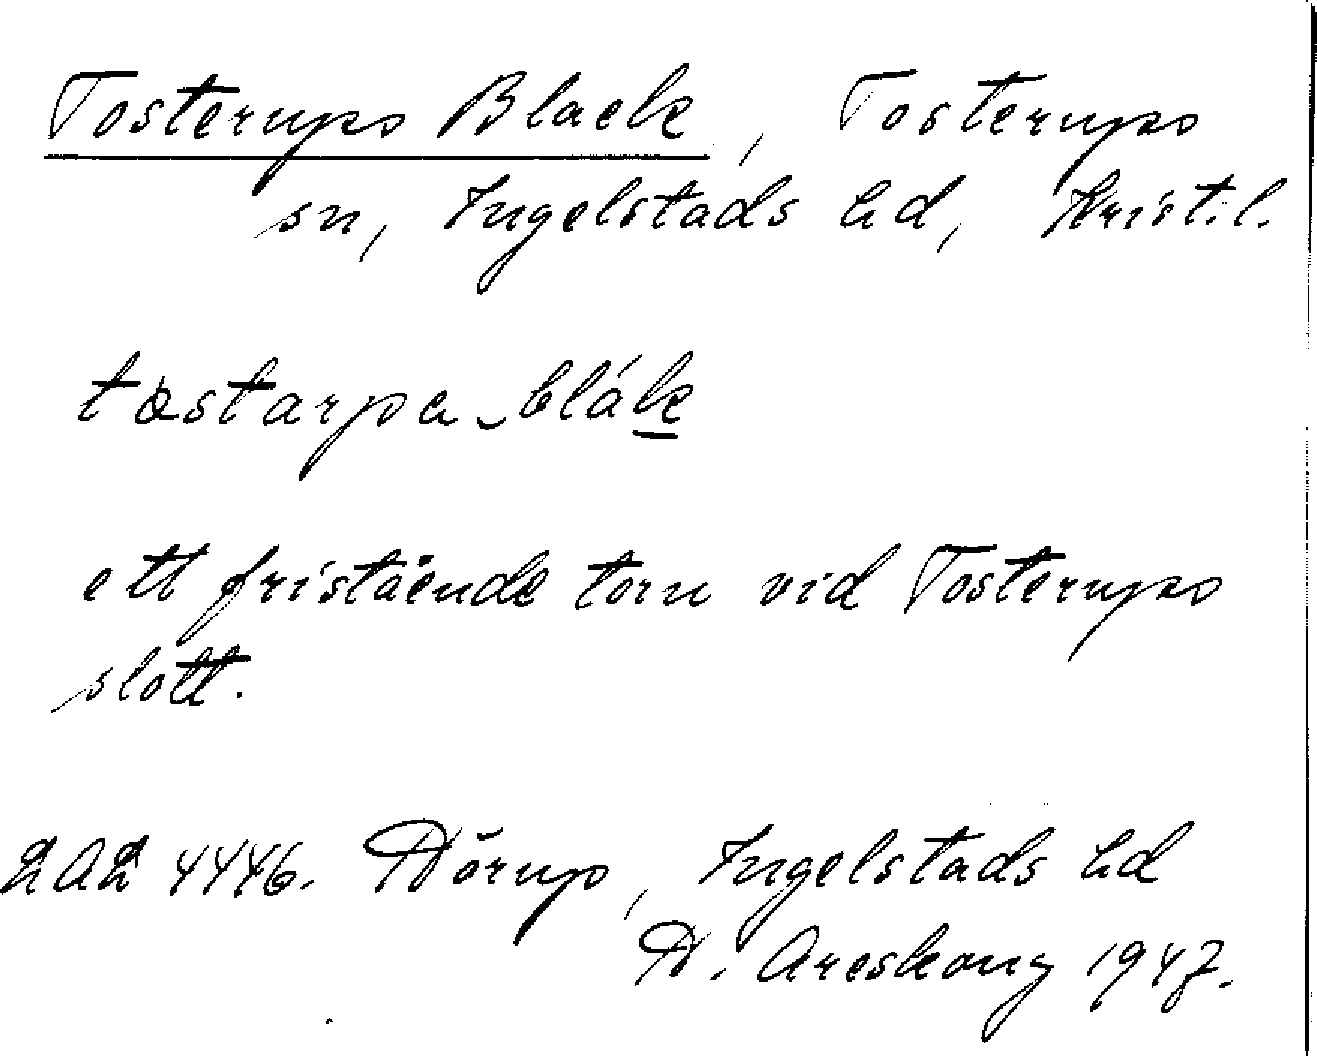 Tosterups Black, Tosterups
sn, Ingelstads hd, Kristil.
tostarpa blák
ett fristående torn vid Tosterups
slott.
LAL 4446. Hörup, Ingelstads hd
H. Areskoug 1947.